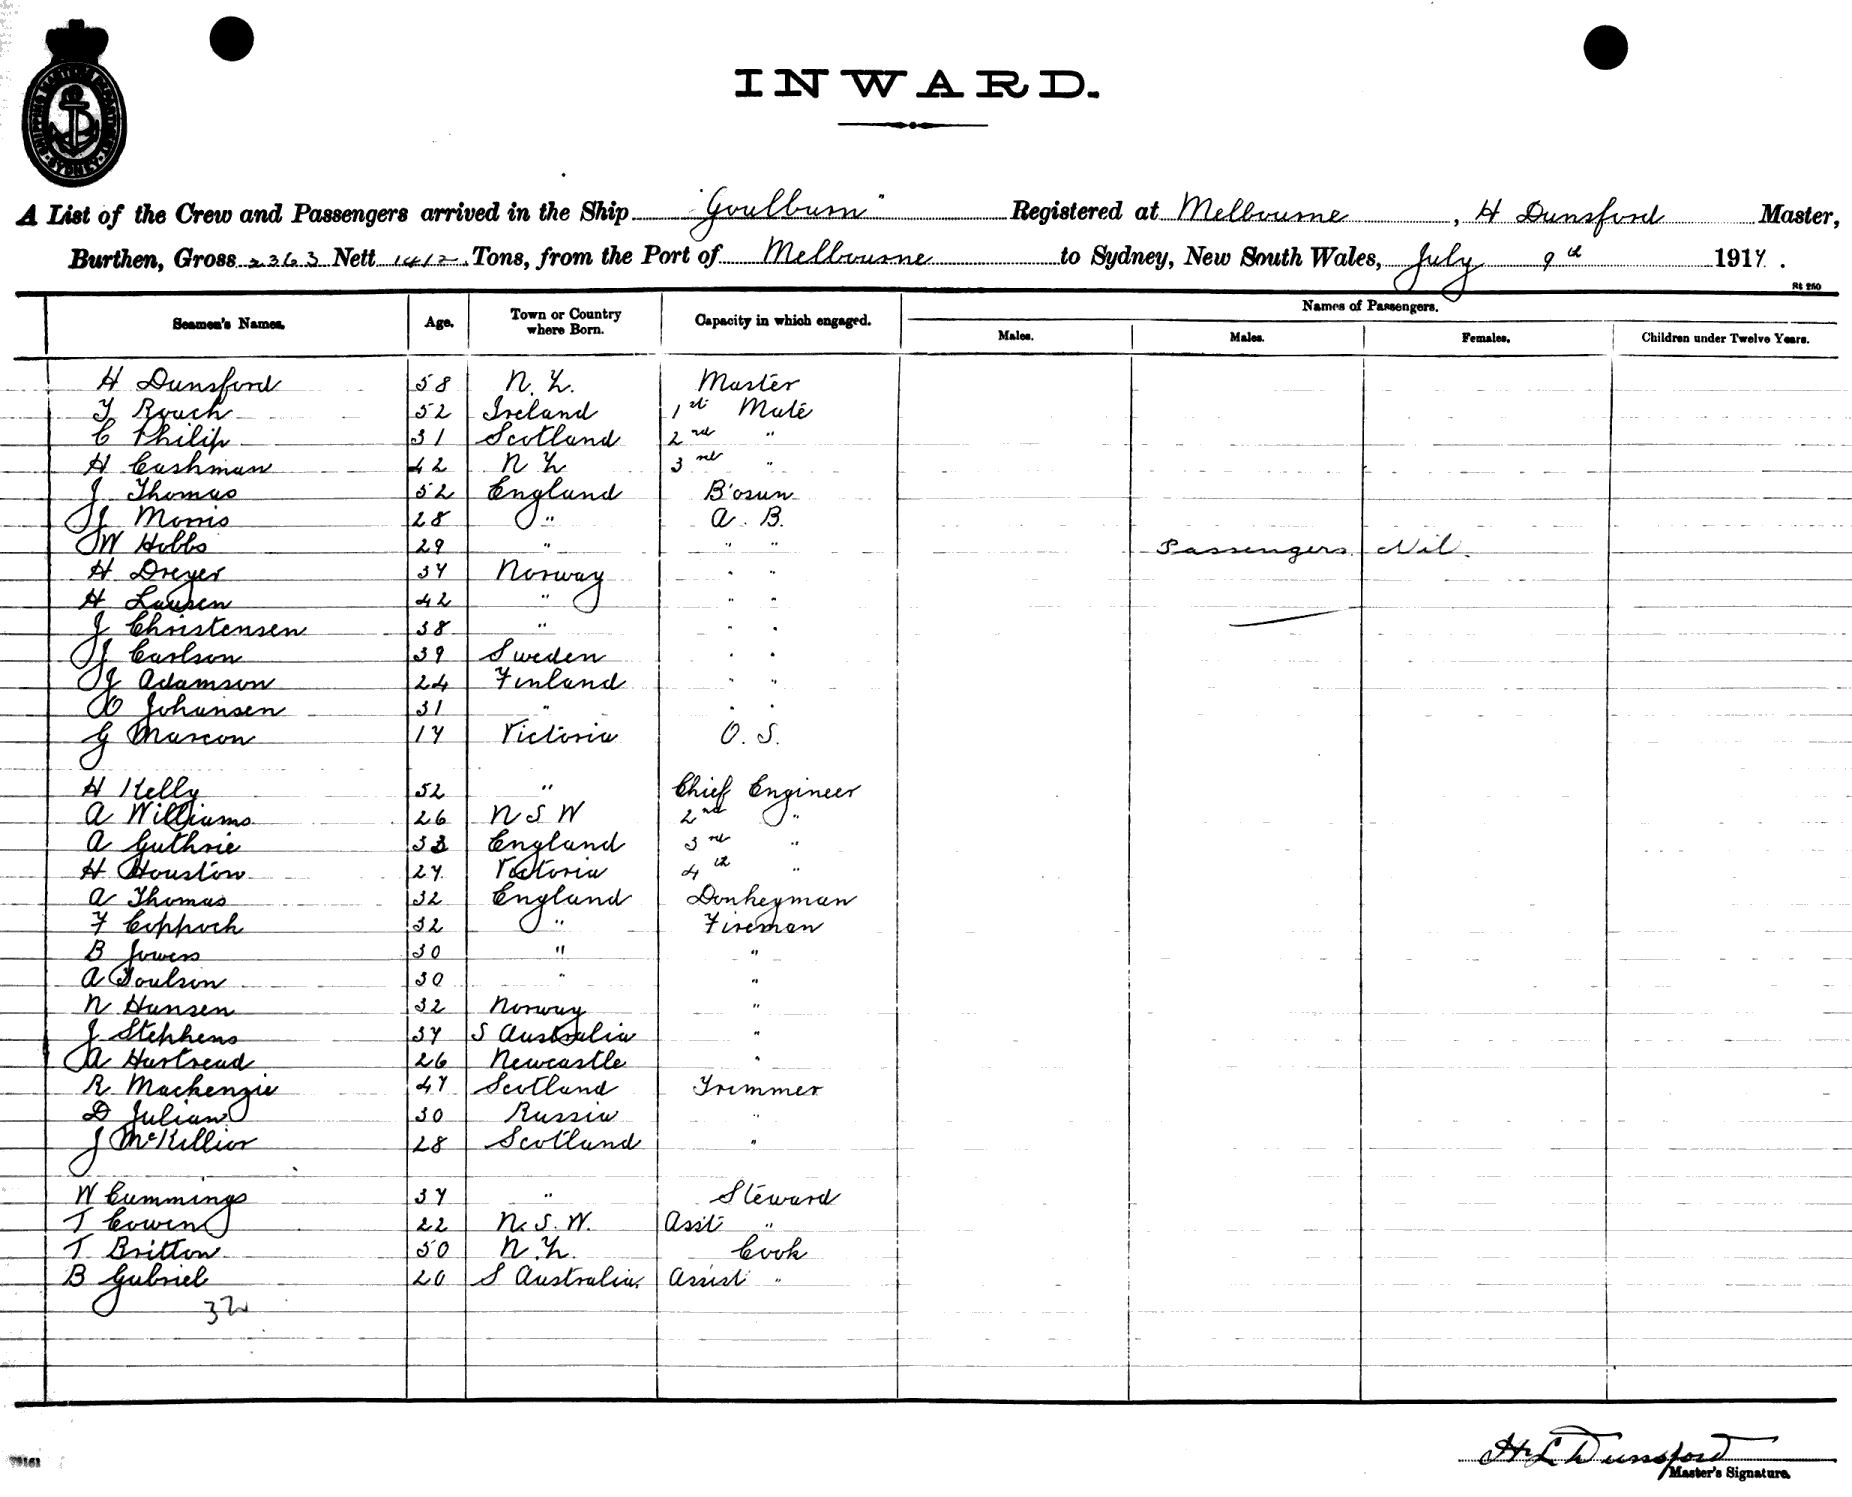 SHIPPING MASTER'S DEPARTMENT SYDNEY
INWARD.
A List of the Crew and Passengers arrived in the Ship "Goulburn" Registered at Melbourne, H Dunsford Master,
Burthen, Gross 2363 Nett 1412 Tons, from the Port of Melbourne to Sydney, New South Wales, July 9th 1917.
St 250
Seamen's Names. Age. Town or Country where Born. Capacity in which engaged. Names of Passengers.
Males. Males. Females. Children under Twelve Years.
H Dunsford 58 N.Z. Master
T Roach 52 Ireland 1st Mate
C Philip 31 Scotland 2nd "
H Cashman 42 N Z 3rd "
J Thomas 52 England B'osun
J Morris 28 " A.B.
W Hobbs 29 " " " Passengers Nil.
H Dreyer 37 Norway " "
H Laursen 42 " " "
J Christensen 38 " " "
J Carlson 39 Sweden " "
J Adamson 24 Finland " "
O Johansen 31 " " "
G Marcon 17 Victoria O.S.
H Kelly 52 " Chief Engineer
A Williams 26 N S W 2nd "
A Guthrie 33 England 3rd "
H Houston 27 Victoria 4th "
A Thomas 32 England Donkeyman
F Coppock 32 " Fireman
B Jowers 30 " "
A Toulson 30 " "
N Hansen 32 Norway "
J Stephens 37 S Australia "
A Hartread 26 Newcastle "
R Mackenzie 47 Scotland Trimmer
D Julian 30 Russia "
J McKillior 28 Scotland "
W Cummings 37 " Steward
T Cowen 22 N.S.W. Asst "
T Britton 50 N.Z. Cook
B Gabriel 20 S Australia Assist "
32
H L Dunsford
Master's Signature.